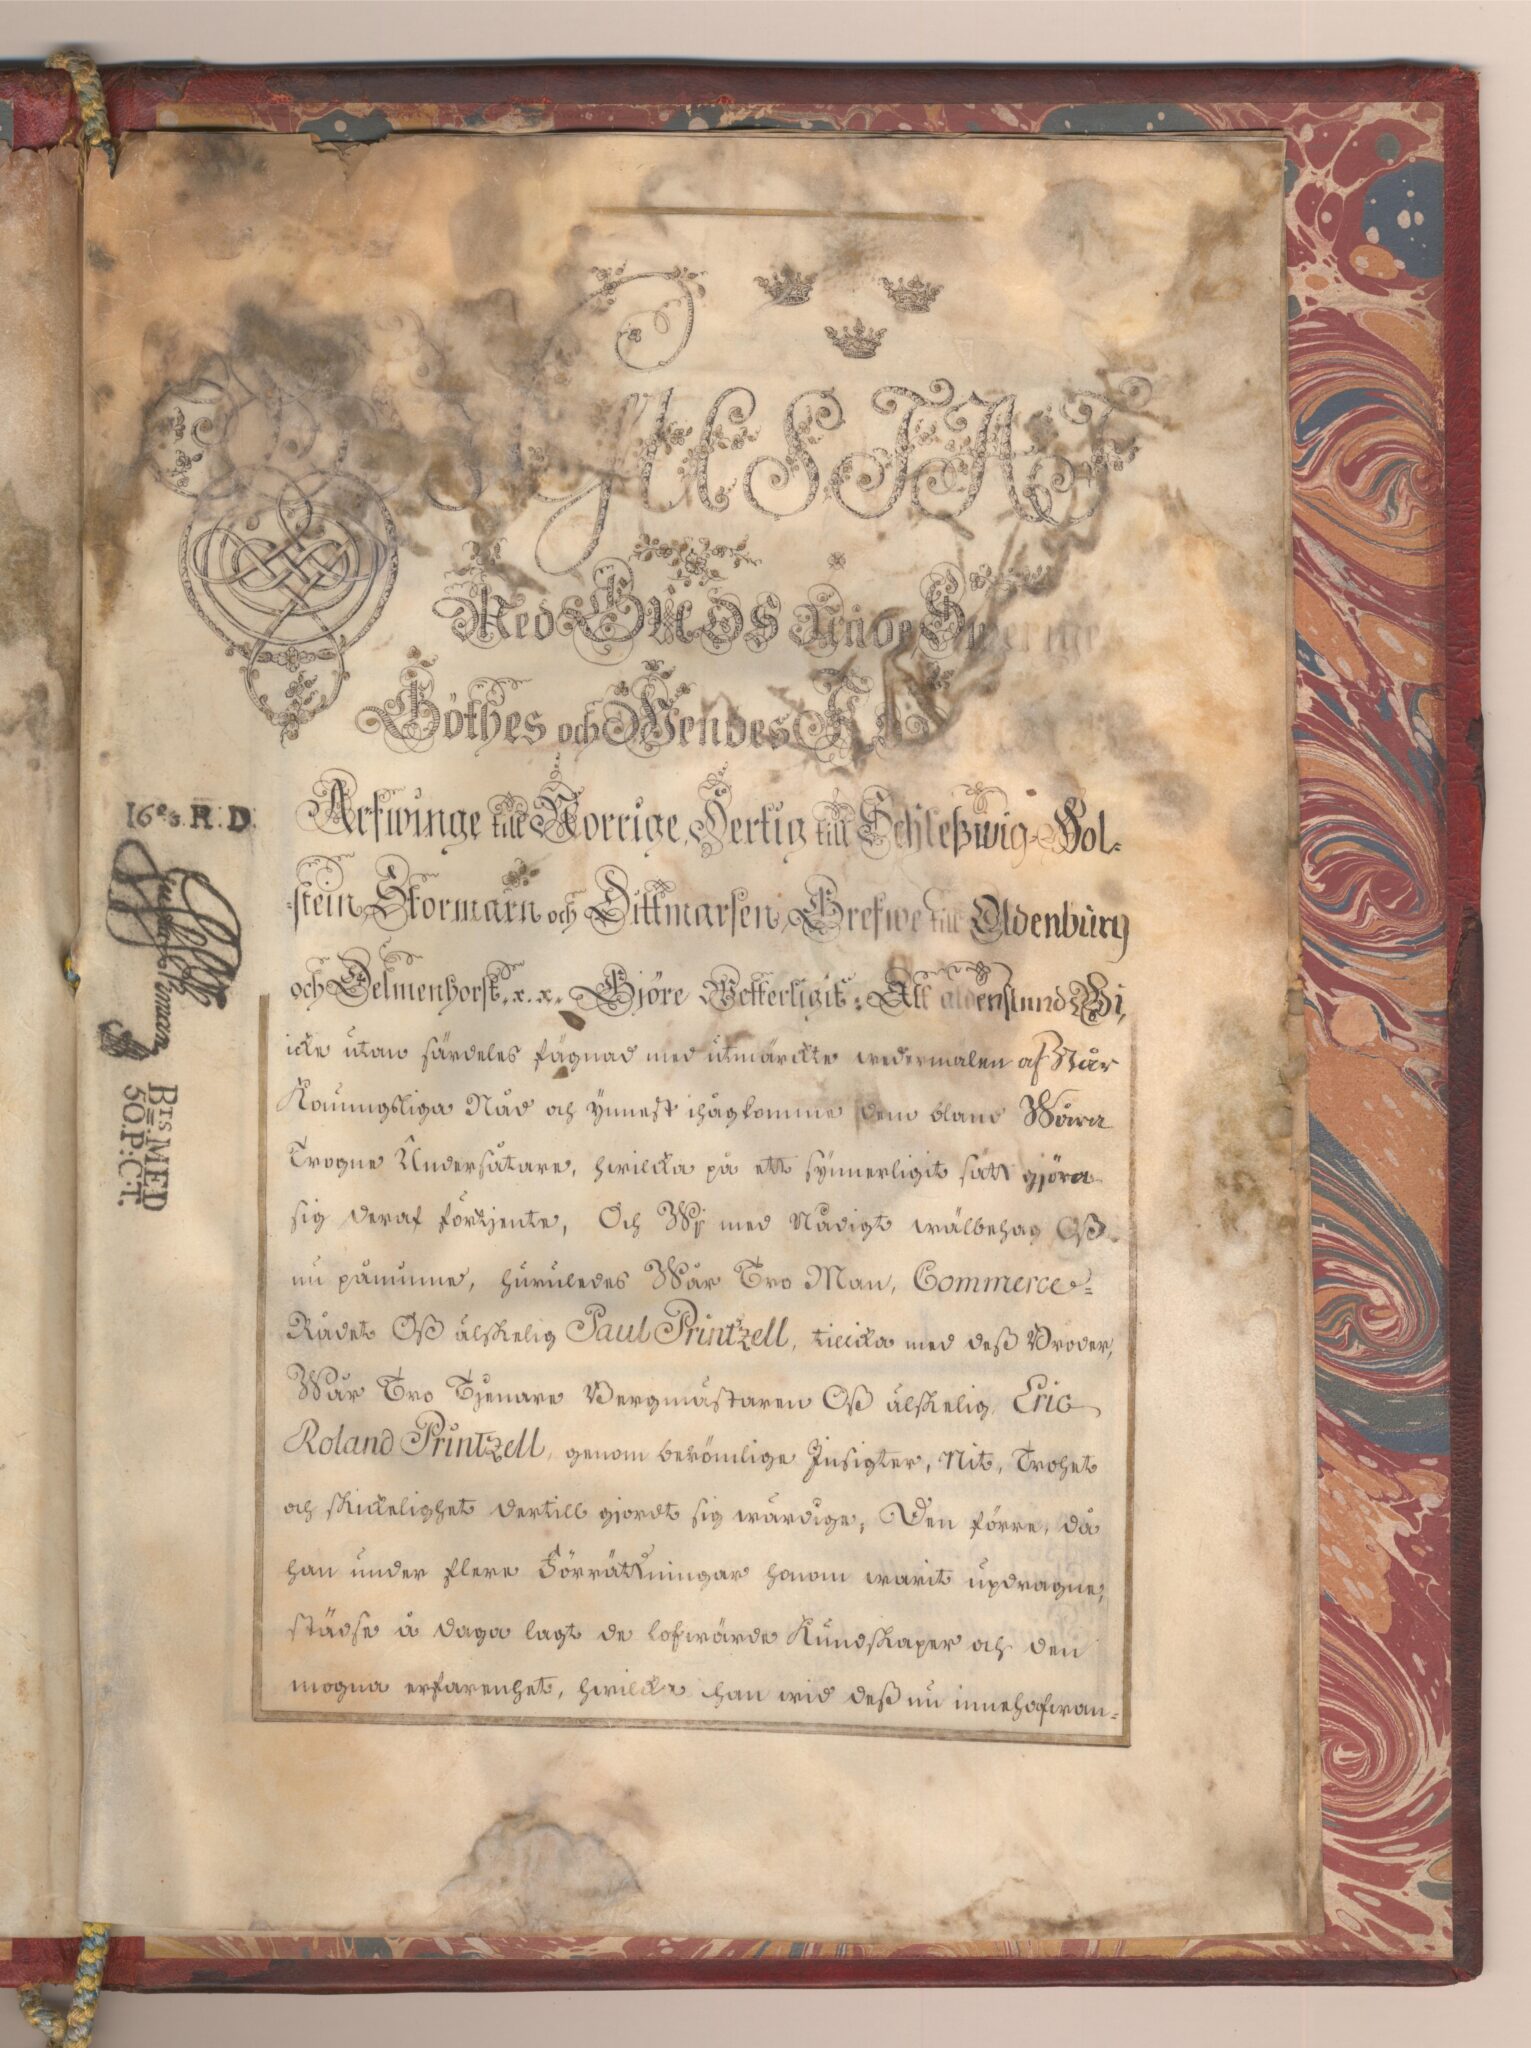 GUSTAF
Med GUDS Nåde Swerige
Göthes och Wendes
Arfwinge till Norrige, Hertig till Schleßwig-Hol-
stein, Stormarn och Dittmarsen, Grefwe till Oldenburg
och Delmenhorst, x. x. Gjöre Wetterligit: Att aldenstund Wi,
icke utan särdeles fägnad med utmärckte wedermälen af Wår
Konungsliga Nåd och Ynnest ihågkomme dem bland Wåra
Trogne Undersåtare, hwilcka på ett synnerligit sätt gjöra
sig deraf förtjente, Och Wij med Nådigt wälbehag Oß
nu påminne, huruledes Wår Tro Man, Commerce-
Rådet Oß älskelig Paul Printzell, licka med deß Broder,
Wår Tro Tjenare Bergmästaren Oß älskelig Eric
Roland Printzell, genom berömlige Insigter, Nit, Trohet
och skickelighet dertill gjordt sig wärdige; Den förre, då
han under flere Förrättningar honom warit updragne,
städse å daga lagt de lofwärde Kundskaper och den
mogna erfarenhet, hwilcka han wid deß nu innehafwan-
16 S. R. D.
Brs MED
50. P: C: T.